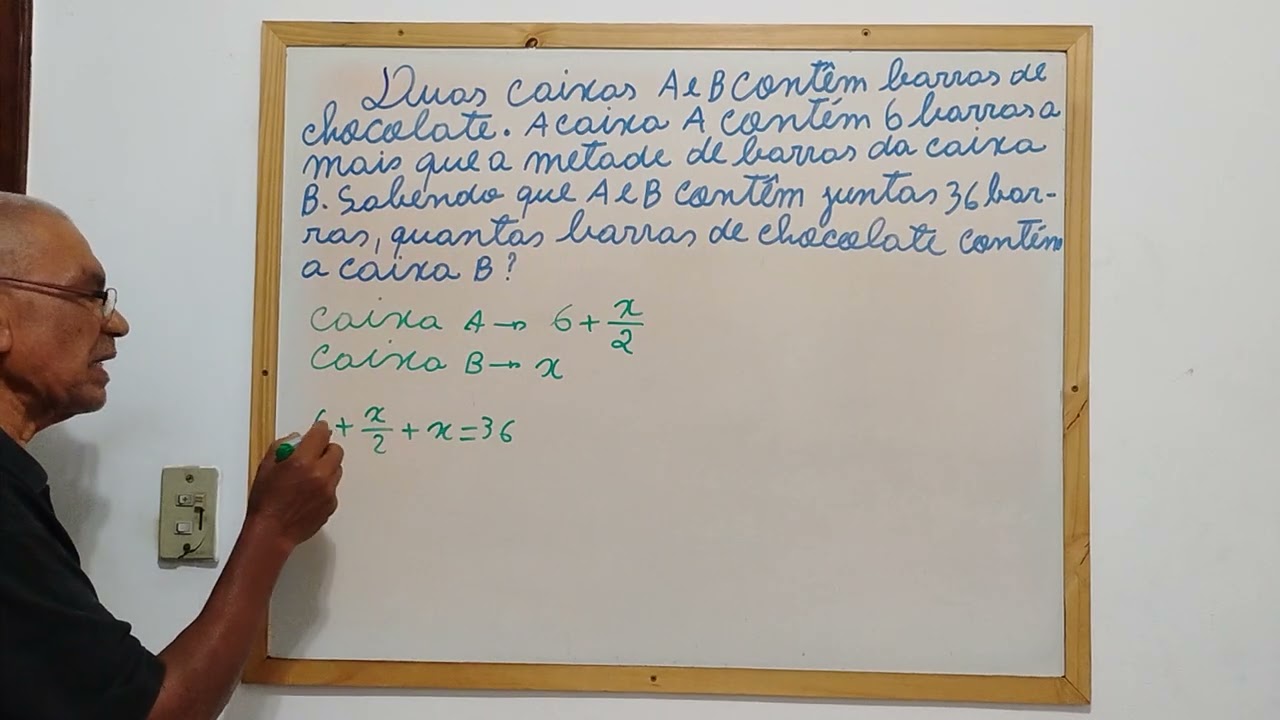 Duas caixas A e B contêm barras de
chocolate. A caixa A contém 6 barras a
mais que a metade de barras da caixa
B. Sabendo que A e B contêm juntas 36 bar-
ras, quantas barras de chocolate contém
a caixa B?
caixa A → 6 + x/2
caixa B → x
6 + x/2 + x = 36